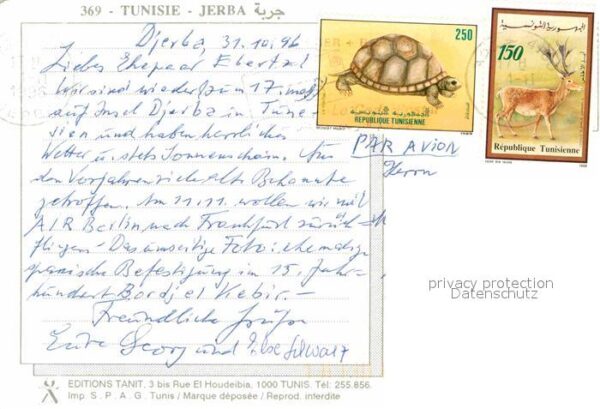 369 - TUNISIE - JERBA جربة
Djerba, 31.10.96
Liebes Ehepaar
Wir sind wieder zum 17. mal
auf Insel Djerba in Tune-
sien und haben herrliches
Wetter u. stets Sonnenschein. Aus
den Vorjahren viele alte Bekannte
getroffen. Am 11.11. wollen wir mit
AIR Berlin nach Frankfurt zurück
fliegen - Das umseitige Foto: ehemalige
spanische Befestigung im 15. Jahr-
hundert Bordj el Kebir. -
Freundliche Grüße
Georg und Ilse
250
الجمهورية التونسية
REPUBLIQUE TUNISIENNE
الجمهورية التونسية
150
République Tunisienne
PAR AVION
Herrn
privacy protection
Datenschutz
EDITIONS TANIT. 3 bis Rue El Houdeibia, 1000 TUNIS. Tél: 255.856.
Imp. S. P. A. G. Tunis / Marque déposée / Reprod. interdite